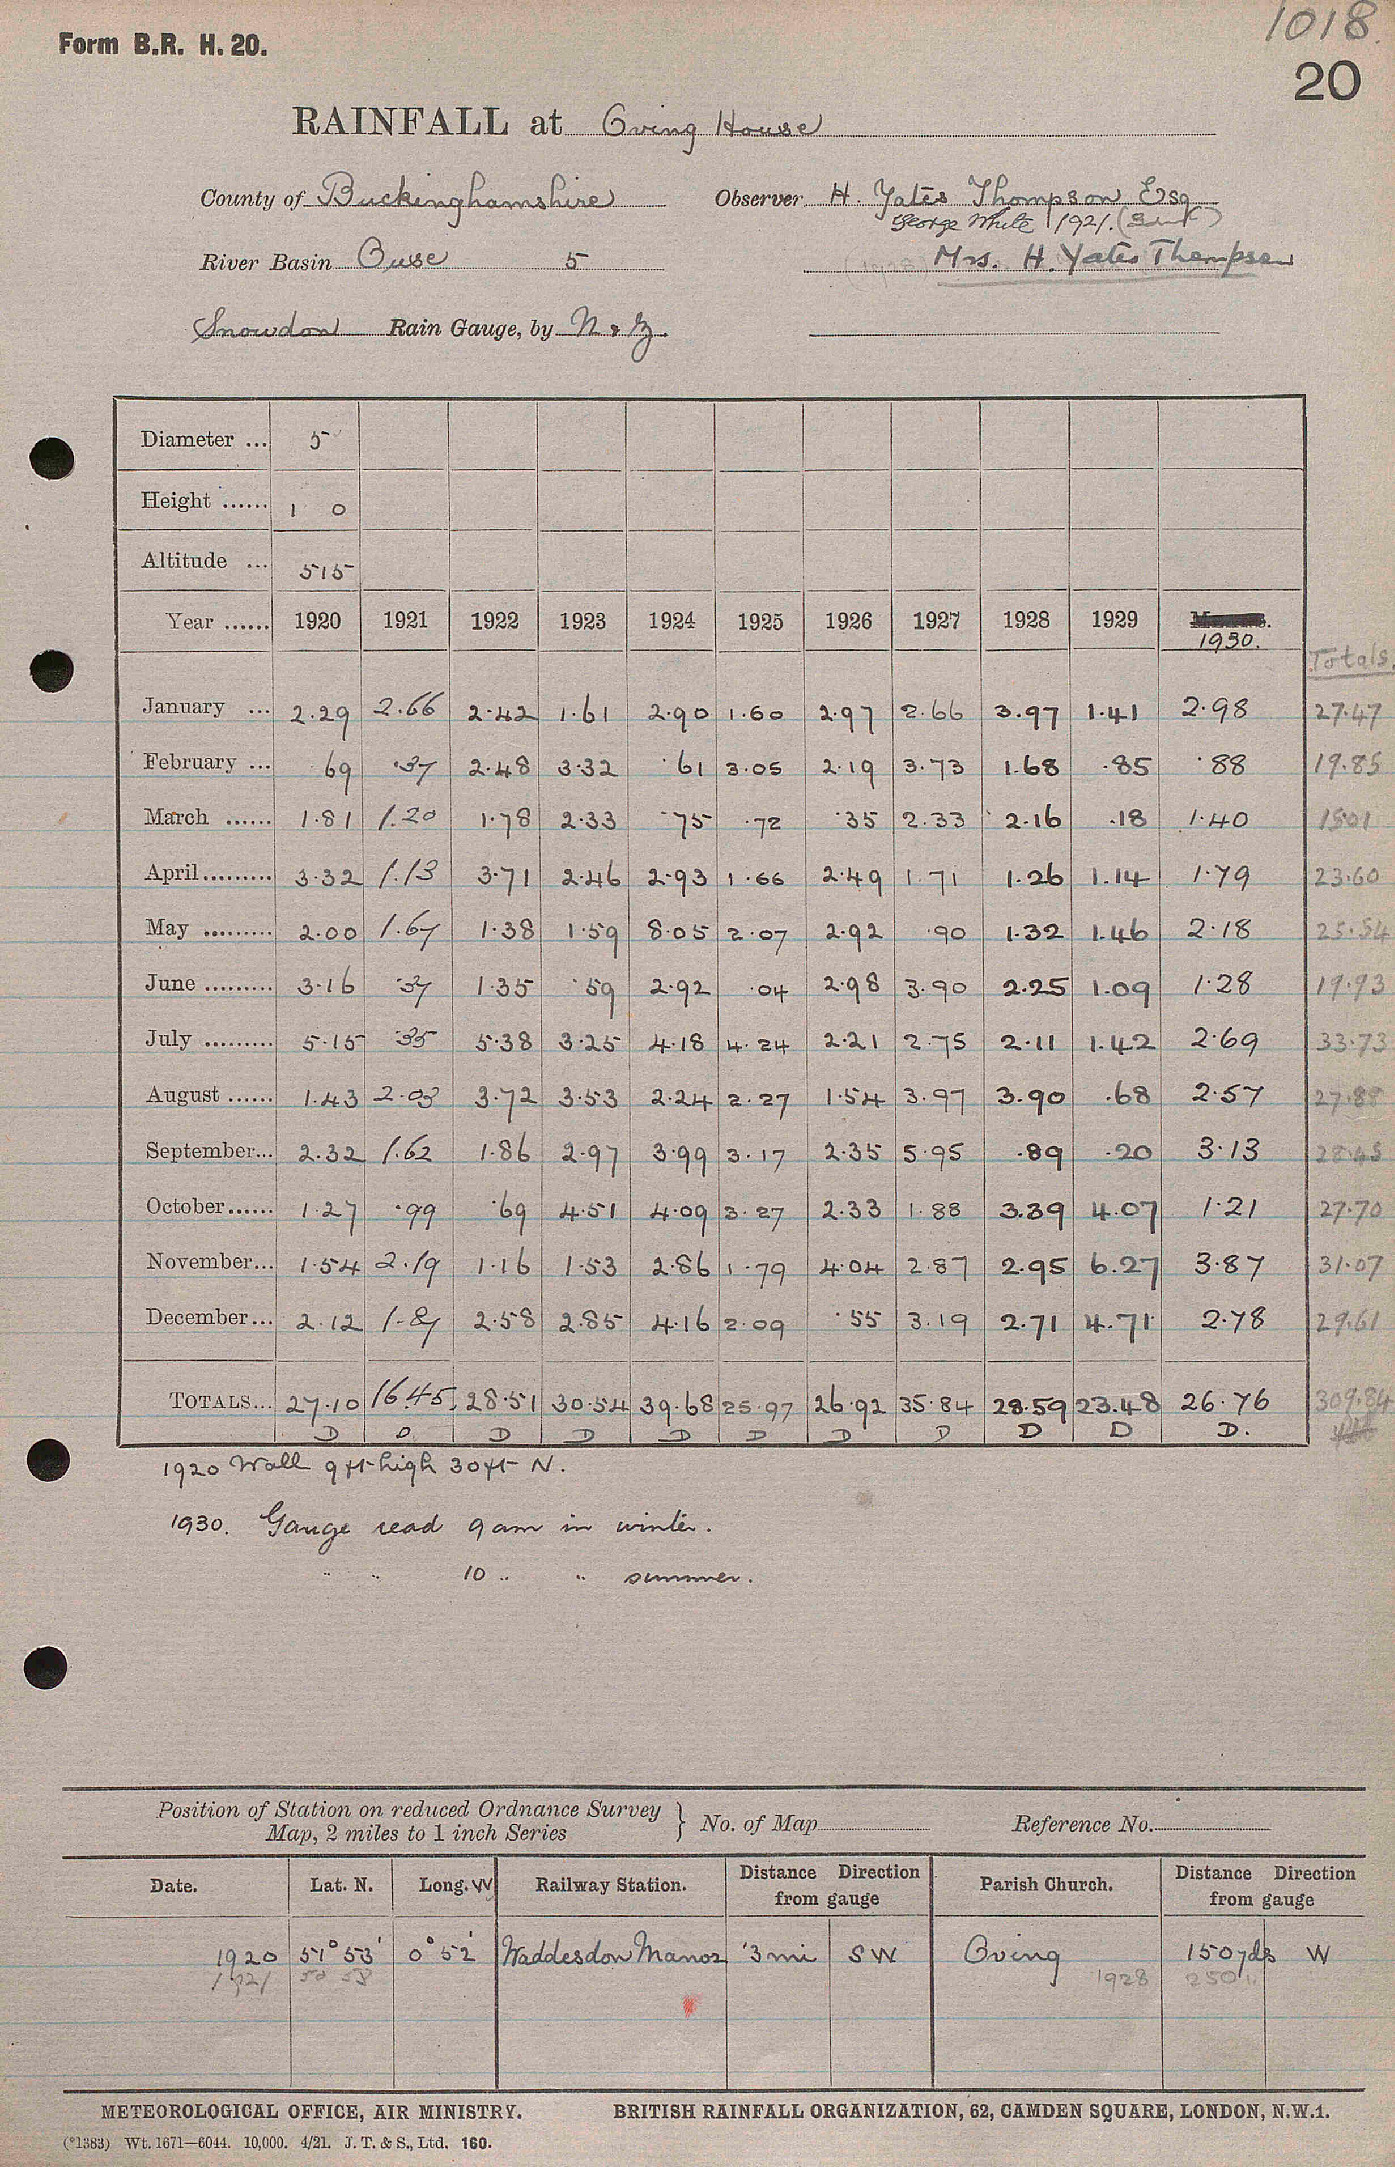 1018
Form B.R. H. 20.
20
RAINFALL at Oving House
County of Buckinghamshire Observer H. Yates Thompson Esq
George White 1921.
River Basin Ouse 5 Mrs. H. Yates Thompson
Snowdon Rain Gauge, by N & Z.
Diameter ... 5
Height ...... 1 0
Altitude ... 515
Year ...... 1920 1921 1922 1923 1924 1925 1926 1927 1928 1929 1930.
Totals.
January ... 2.29 2.66 2.42 1.61 2.90 1.60 2.97 2.66 3.97 1.41 2.98 27.47
February ... 69 .37 2.48 3.32 .61 3.05 2.19 3.73 1.68 .85 .88 19.85
March ...... 1.81 1.20 1.78 2.33 .75 .72 .35 2.33 2.16 .18 1.40 1501
April ......... 3.32 1.13 3.71 2.46 2.93 1.66 2.49 1.71 1.26 1.14 1.79 23.60
May ......... 2.00 1.67 1.38 1.59 8.05 2.07 2.92 .90 1.32 1.46 2.18 25.54
June ......... 3.16 .37 1.35 .59 2.92 .04 2.98 3.90 2.25 1.09 1.28 19.93
July ......... 5.15 .35 5.38 3.25 4.18 4.24 2.21 2.75 2.11 1.42 2.69 33.73
August ...... 1.43 2.03 3.72 3.53 2.24 2.27 1.54 3.97 3.90 .68 2.57 27.88
September... 2.32 1.62 1.86 2.97 3.99 3.17 2.35 5.95 .89 .20 3.13 28.45
October...... 1.27 .99 .69 4.51 4.09 3.27 2.33 1.88 3.39 4.07 1.21 27.70
November... 1.54 2.19 1.16 1.53 2.86 1.79 4.04 2.87 2.95 6.27 3.87 31.07
December... 2.12 1.87 2.58 2.85 4.16 2.09 .55 3.19 2.71 4.71 2.78 29.61
TOTALS... 27.10 16.45. 28.51 30.54 39.68 25.97 26.92 35.84 28.59 23.48 26.76 309.84
D D D D D D D D D D D.
1920 Wall 9 ft high 30 ft N.
1930. Gauge read 9 am in winter.
" " 10 " " summer.
Position of Station on reduced Ordnance Survey
Map, 2 miles to 1 inch Series } No. of Map Reference No.
Date. Lat. N. Long. W Railway Station. Distance Direction from gauge Parish Church. Distance Direction from gauge
1920 51° 53' 0° 52' Waddesdon Manor 3 mi SW Oving 150 yds W
1921 1928 250 "
METEOROLOGICAL OFFICE, AIR MINISTRY. BRITISH RAINFALL ORGANIZATION, 62, CAMDEN SQUARE, LONDON, N.W.1.
(*1383) Wt. 1671—6044. 10,000. 4/21. J. T. & S., Ltd. 160.